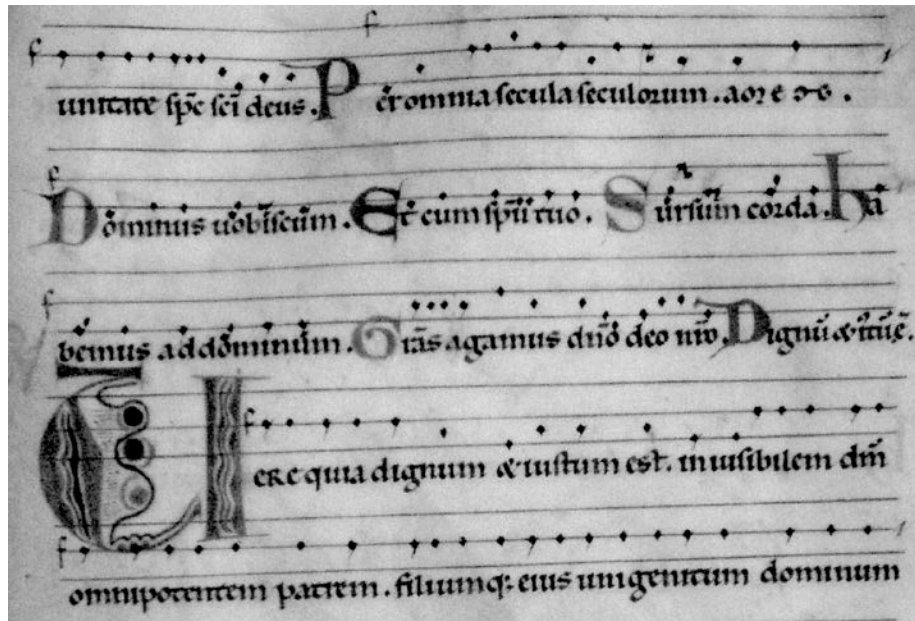 unitate sp̄c sc̄i deus. Per omnia secula seculorum. aoꝛ e
Dominus uobiscum. Et cum sp̄u tuo. Sursum corda. ha
bemus ad dominum. Gr̄as agamus dn̄o deo nr̄o. Dignū & iustū ē.
UERE quia dignum & iustum est. inuisibilem dm̄
omnipotentem patrem. filiumq; eius unigenitum dominum